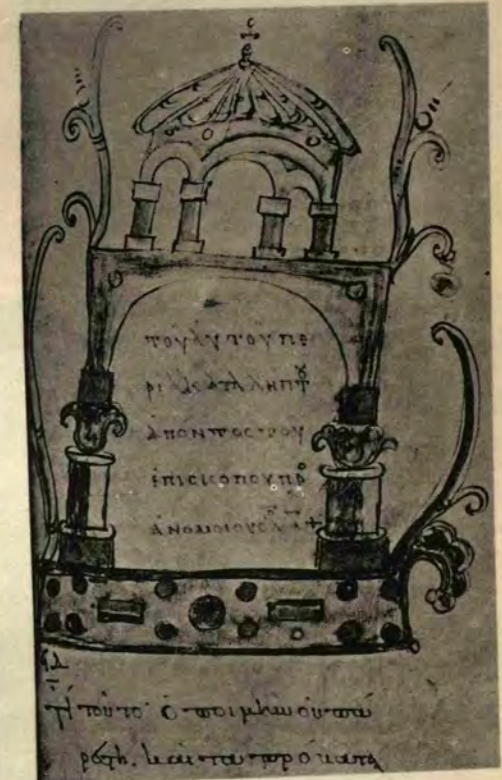 ΤΟΥ ΑΥΤΟΥ ΠΕ
ΡΙ ΑΚΑΤΑΛΗΠΤΟΥ
ΑΠΟΝΤΟΣ ΤΟΥ
ΕΠΙΣΚΟΠΟΥ ΠΡΟ
ΑΝΟΜΟΙΟΥΣ
Τί τοῦτο· ὁ ποιμὴν οὐ πά
ρεστι. καὶ τὰ πρόβατα